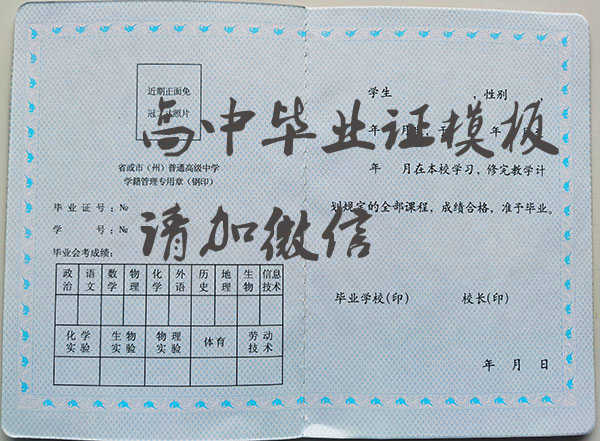 近期正面免
冠 照片
省或市（州）普通高级中学
学籍管理专用章（钢印）
毕业证号：№
学 号：№
毕业会考成绩：
政治 语文 数学 物理 化学 外语 历史 地理 生物 信息技术
化学实验 生物实验 物理实验 体育 劳动技术
学生 ，性别 ，
年 月 年 月
年 月在本校学习，修完教学计
划规定的全部课程，成绩合格，准予毕业。
毕业学校（印） 校长（印）
年 月 日
高中毕业证模板
请加微信